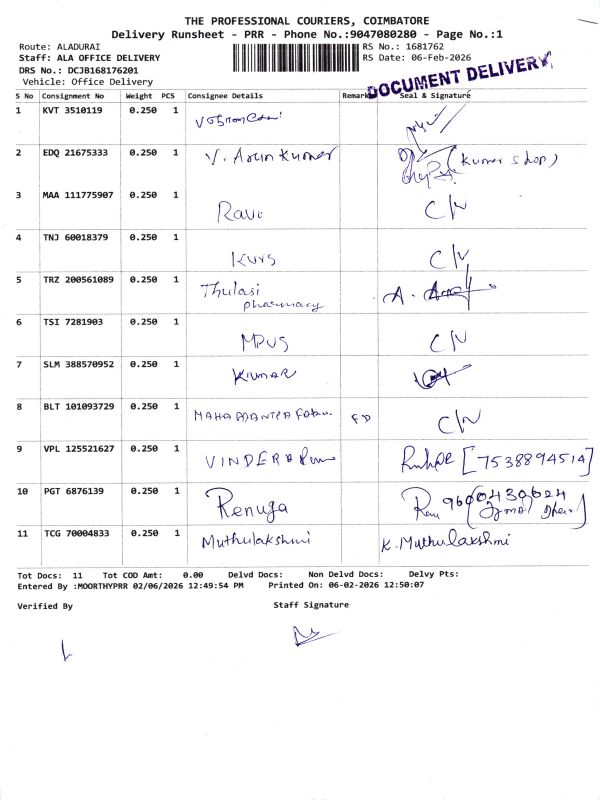 THE PROFESSIONAL COURIERS, COIMBATORE
Delivery Runsheet - PRR - Phone No.:9047080280 - Page No.:1
Route: ALADURAI
RS No.: 1681762
Staff: ALA OFFICE DELIVERY
RS Date: 06-Feb-2026
DRS No.: DCJB168176201
Vehicle: Office Delivery
DOCUMENT DELIVERY
S No Consignment No Weight PCS Consignee Details Remark Seal & Signature
1 KVT 3510119 0.250 1
2 EDQ 21675333 0.250 1 V. Arunkumar (Kumar shop)
3 MAA 111775907 0.250 1 Ravi C/N
4 TNJ 60018379 0.250 1 C/N
5 TRZ 200561089 0.250 1 Thulasi pharmacy A.
6 TSI 7281903 0.250 1 MPUS C/N
7 SLM 388570952 0.250 1 KUMAR
8 BLT 101093729 0.250 1 C/N
9 VPL 125521627 0.250 1 [7538894514]
10 PGT 6876139 0.250 1 Renuga 9600430624
11 TCG 70004833 0.250 1 Muthulakshmi K. Muthulakshmi
Tot Docs: 11 Tot COD Amt: 0.00 Delvd Docs: Non Delvd Docs: Delvy Pts:
Entered By :MOORTHYPRR 02/06/2026 12:49:54 PM Printed On: 06-02-2026 12:50:07
Verified By Staff Signature